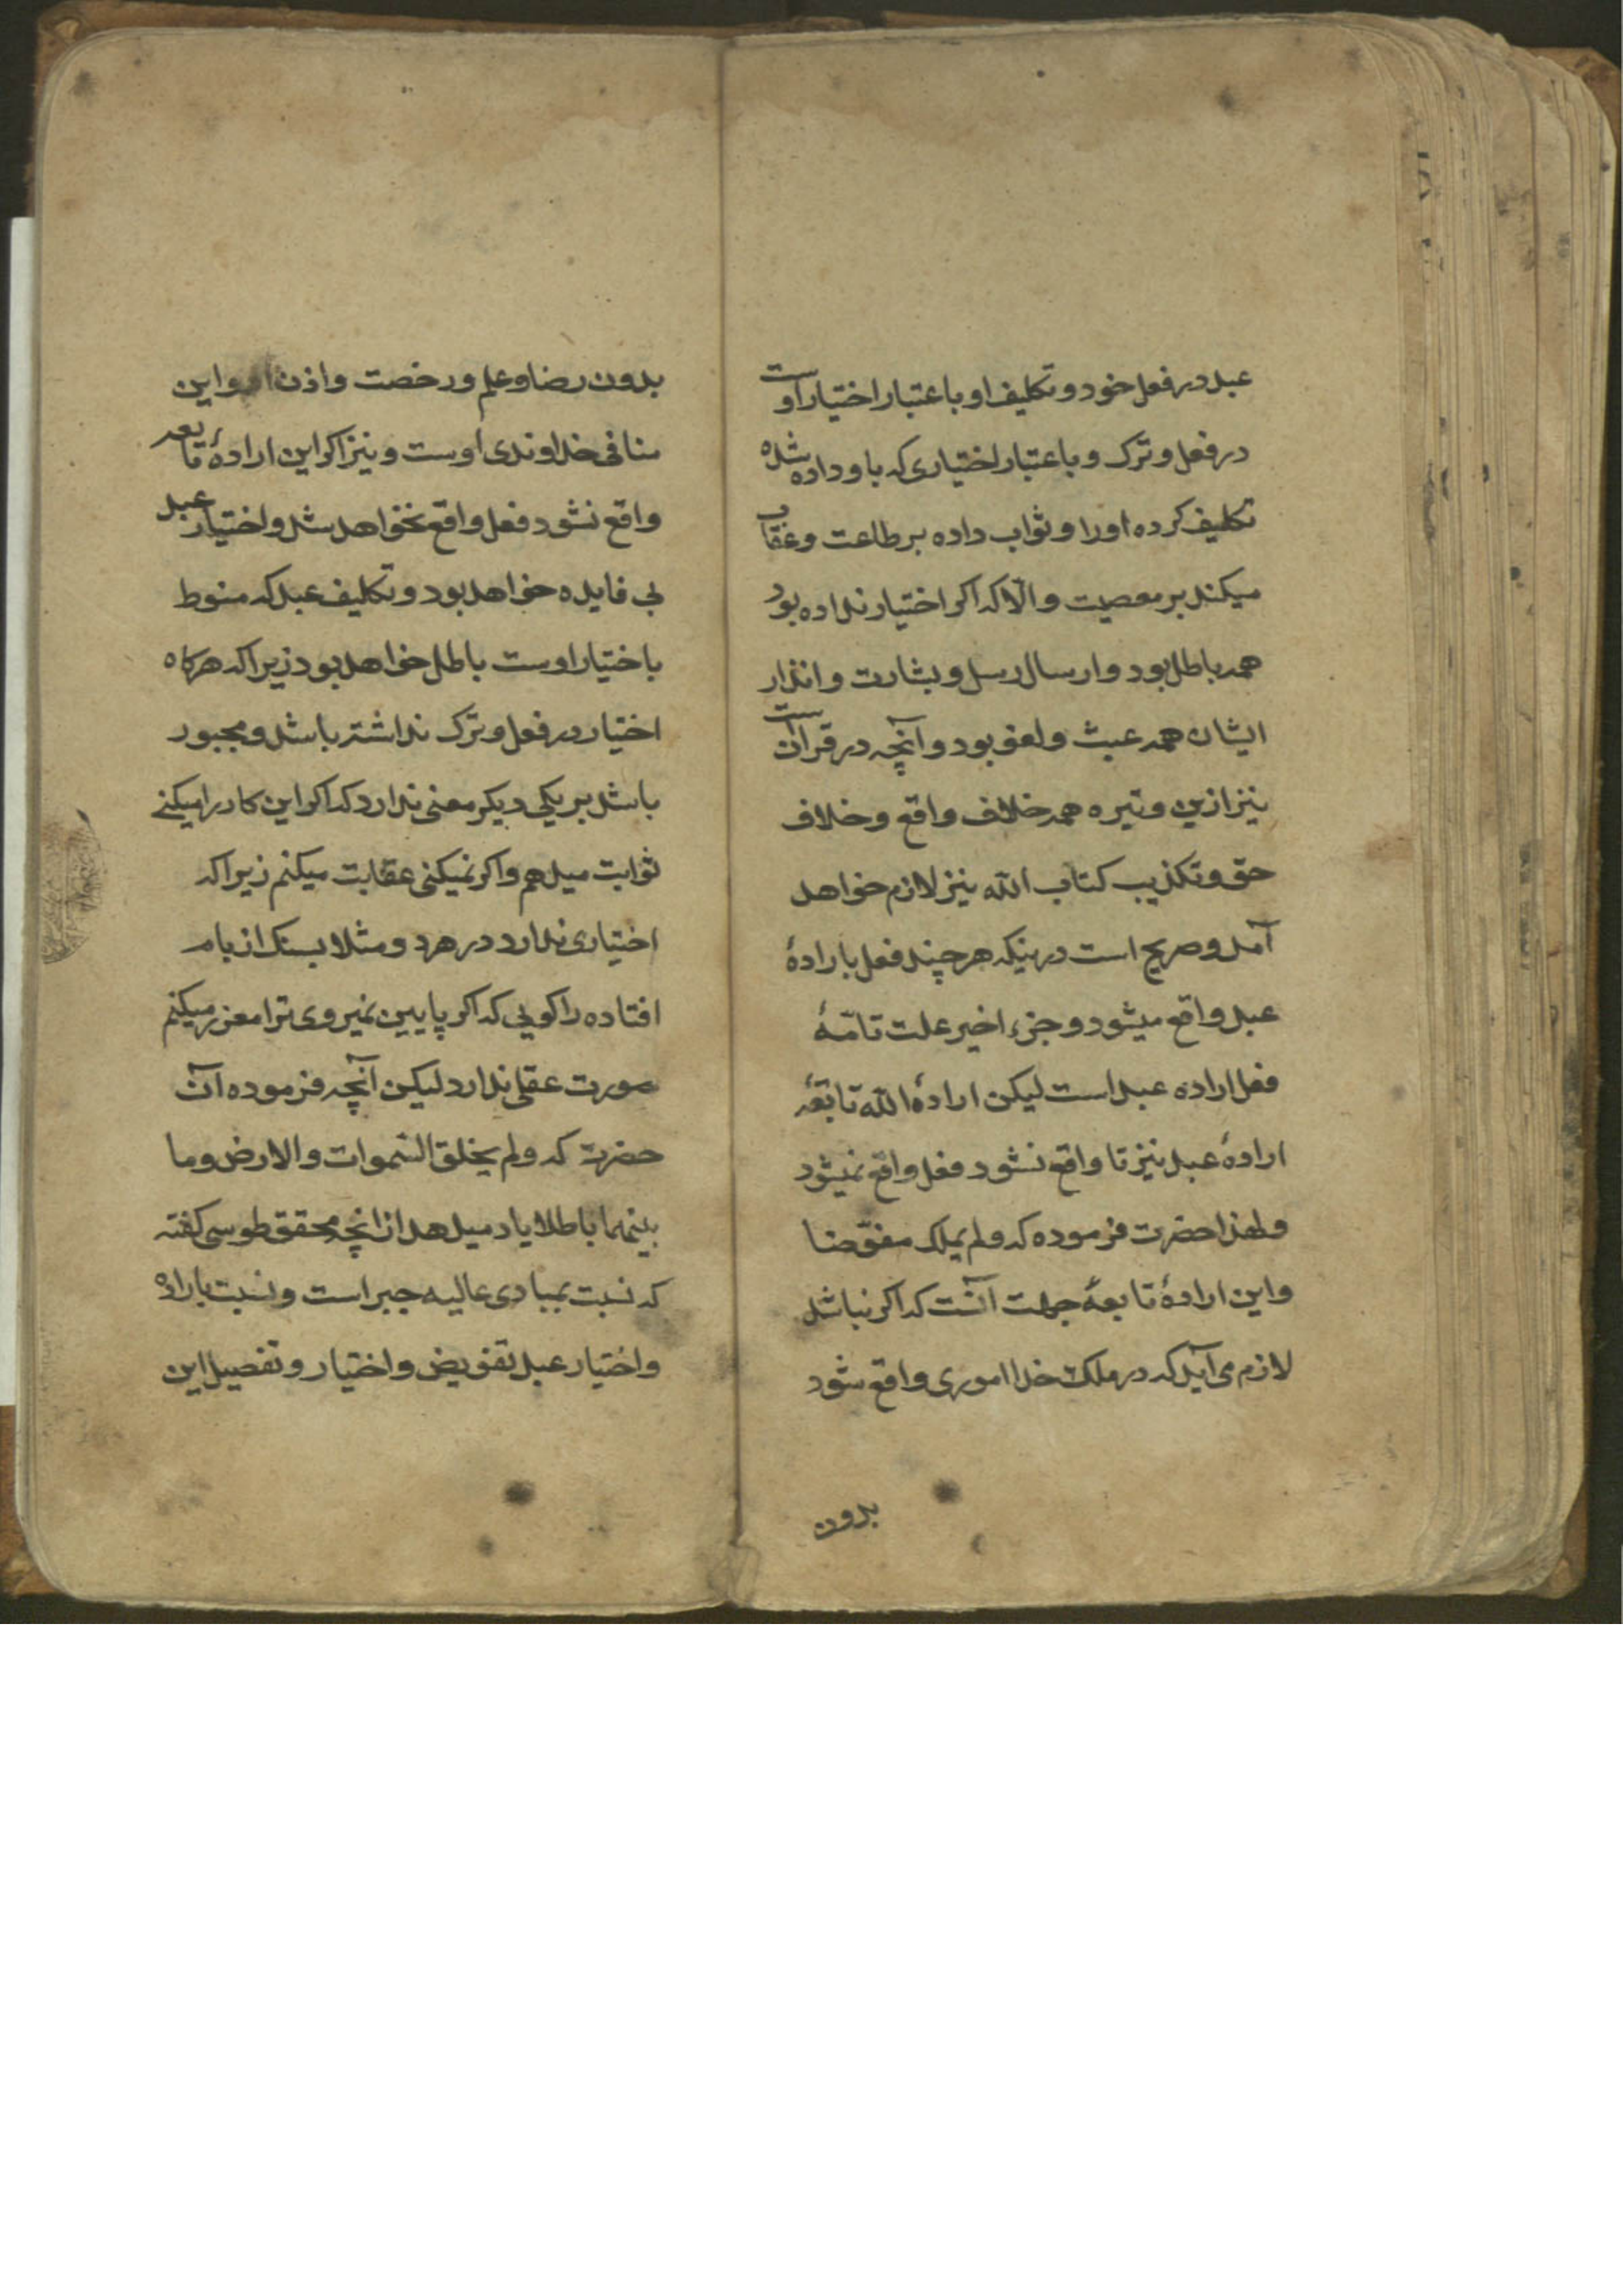 عبد در فعل خود و تکلیف او باعتبار اختیار اوست
در فعل و ترک و باعتبار اختیاری که باو داده شده
تکلیف کرده اورا و ثواب داده بر طاعت و عقاب
میکند بر معصیت و الّا که اکر اختیار نداده بود
همه باطل بود و ارسال رسل و بشارت و انذار
ایشان همه عبث و لغو بود و آنچه در قرآنست
نیز ازین وتیره همه خلاف واقع و خلاف
حق و تکذیب کتاب الله نیز لازم خواهد
آمد و صریح است درینکه هر چند فعل بارادهٔ
عبد واقع میشود و جزء اخیر علت تامّهٔ
فعل اراده عبد است لیکن ارادهٔ الله تابعهٔ
ارادهٔ عبد نیز تا واقع نشود فعل واقع نمیشود
ولهذا حضرت فرموده که ولم یملک مفوّضا
و این ارادهٔ تابعهٔ جهت آنست که اکر نباشد
لازم می آید که در ملک خدا اموری واقع شود
بدون
بدون رضا و علم و رخصت و اذن او و این
منافی خداوندی اوست و نیز اکر این ارادهٔ تابعه
واقع نشود فعل واقع نخواهد شد و اختیار عبد
بی فایده خواهد بود و تکلیف عبد که منوط
باختیار اوست باطل خواهد بود زیرا که هرکاه
اختیار در فعل و ترک نداشته باشد و مجبور
باشد بر یکی دیکر معنی ندارد که اکر این کار را میکنی
ثوابت میدهم و اکر نمیکنی عقابت میکنم زیرا که
اختیاری ندارد در هردو مثلا بسنک از بام
افتاده را کویی که اکر پایین نمیروی ترا معزز میکنم
صورت عقلی ندارد لیکن آنچه فرموده آن
حضرت که ولم یخلق السّموات والارض وما
بینهما باطلا یاد میدهد از انچه محقق طوسی کفته
که نسبت بمبادی عالیه جبر است و نسبت باراده
و اختیار عبد تفویض و اختیار و تفصیل این